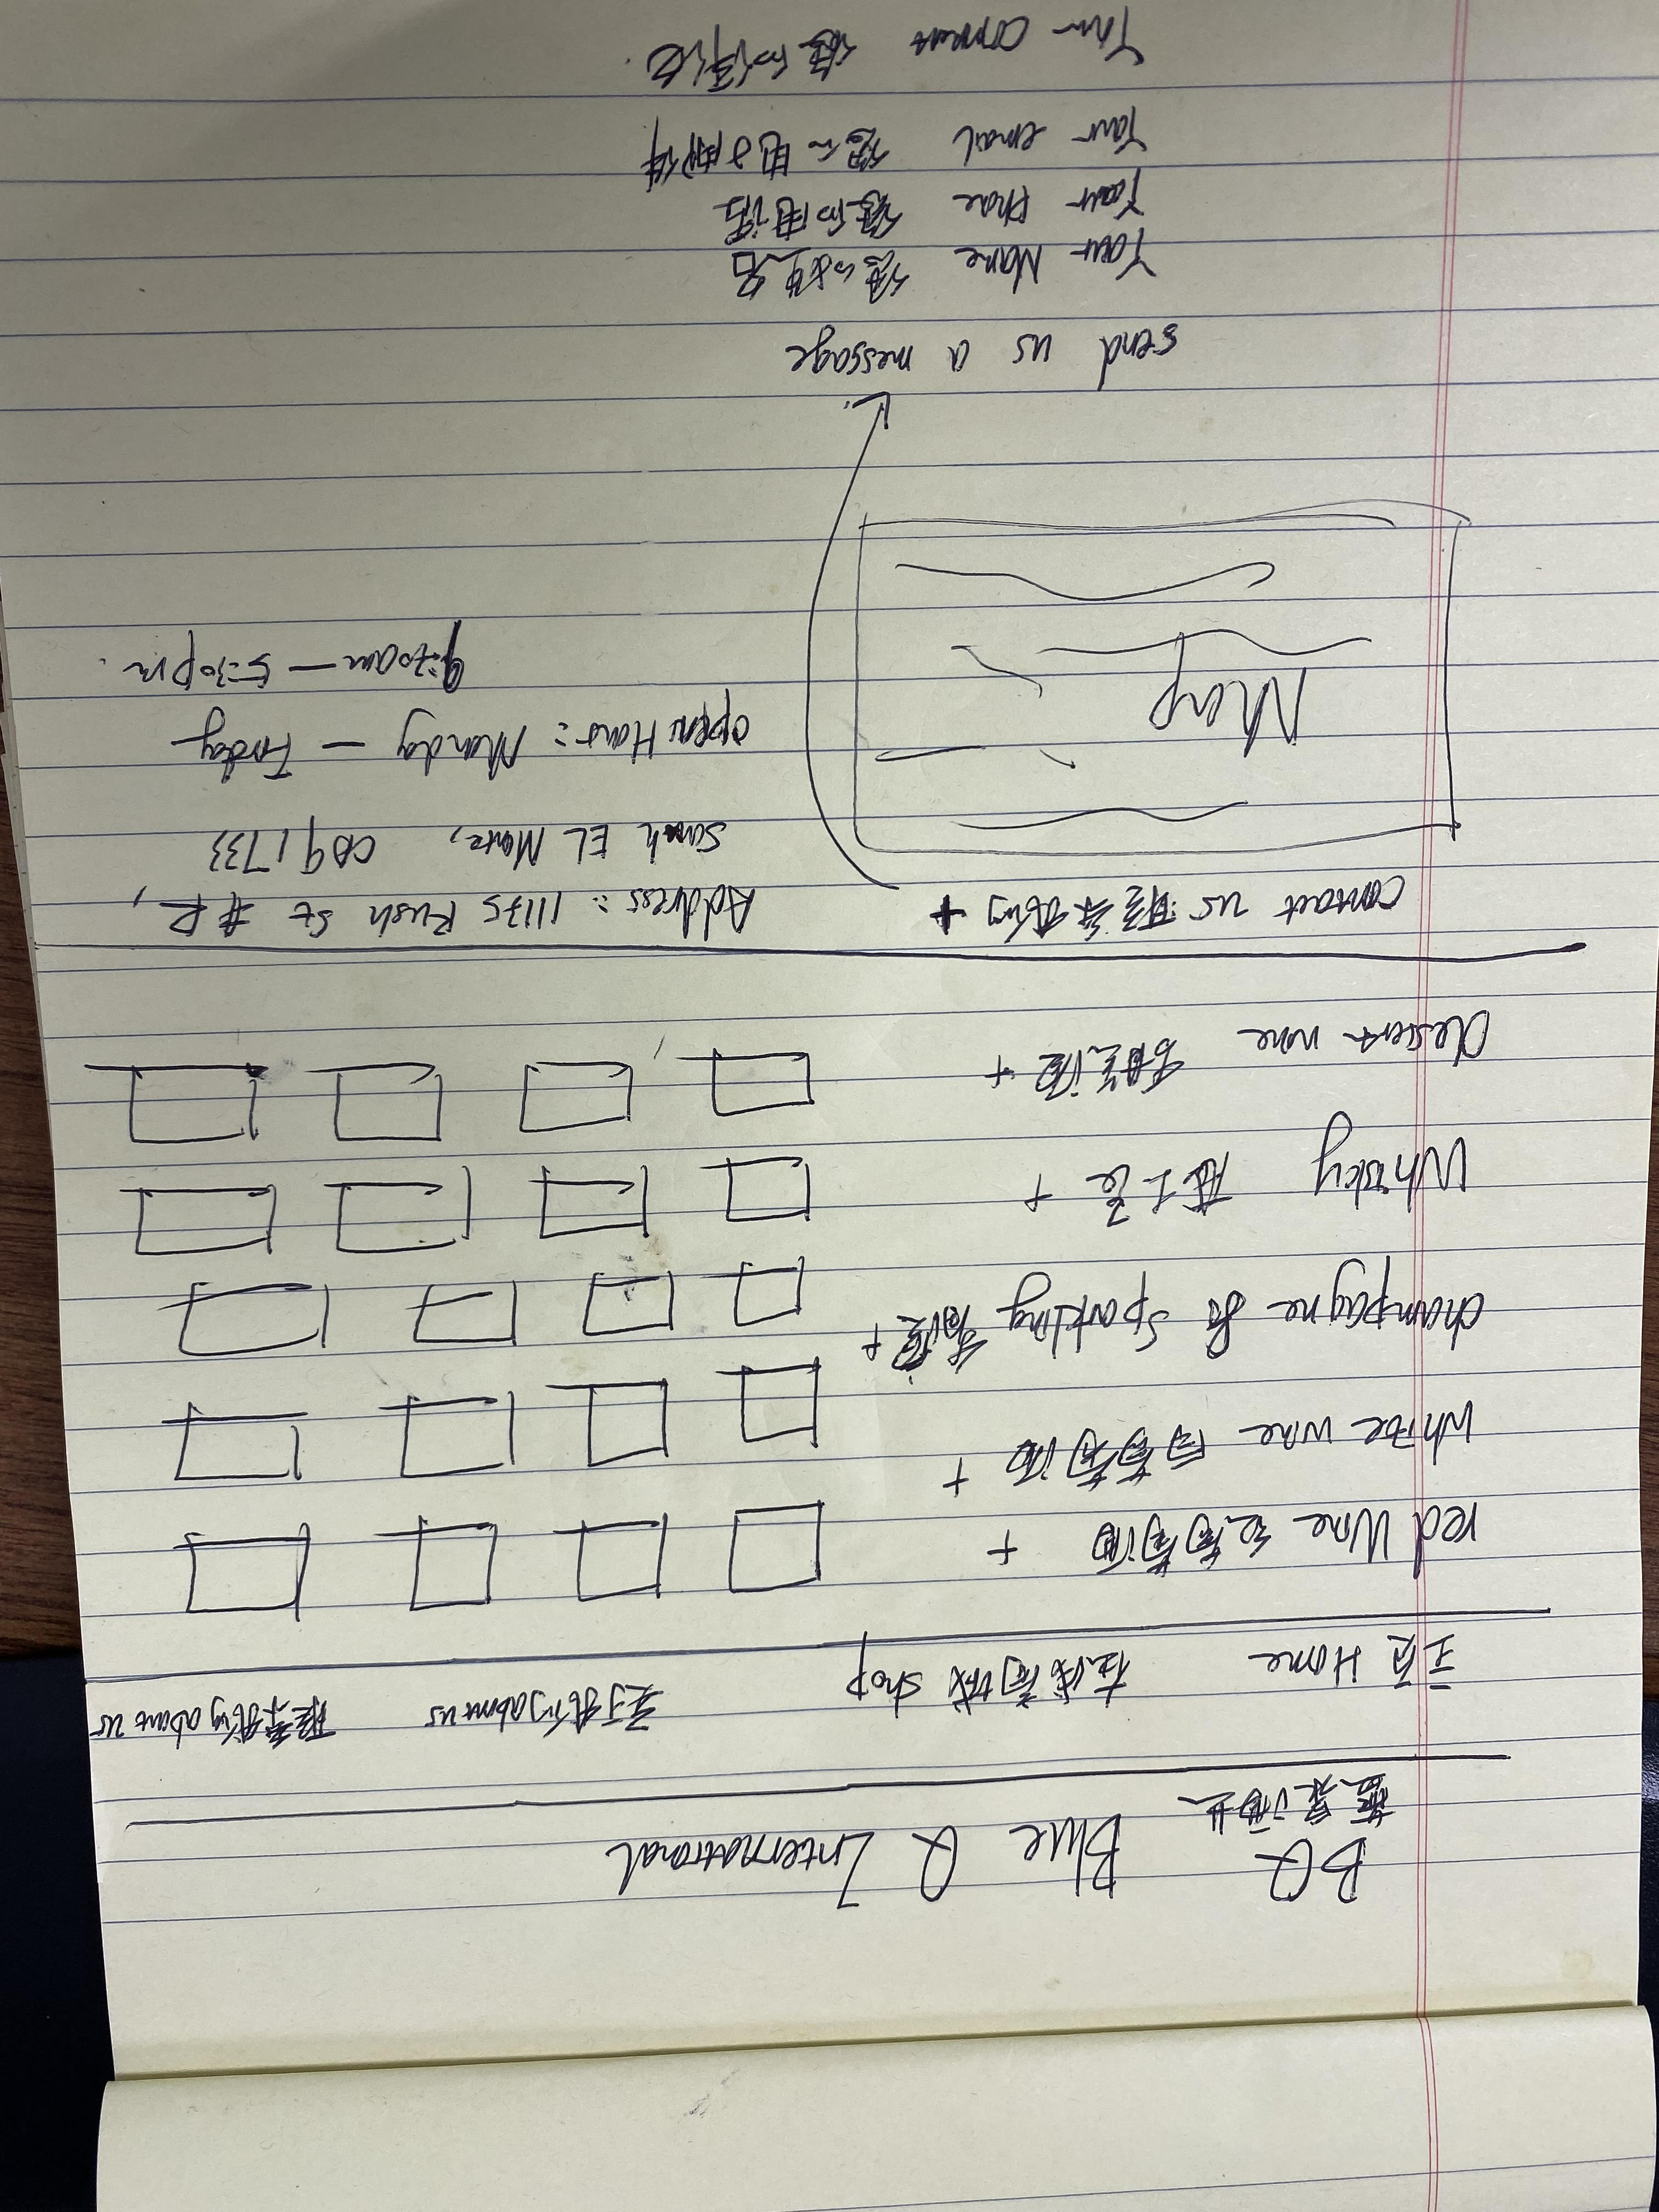 BQ Blue Q International
蓝泉酒业
主页 Home 在线商城 shop 关于我们 about us 联系我们 about us
red Wine 红葡萄酒 +
white wine 白葡萄酒 +
champagne & Sparkling 香槟 +
Whisky 威士忌 +
dessert wine 甜 酒 +
contact us 联系我们 +
Address: 11175 Rush St # R,
South EL Monte, CA 91733
open Hour: Monday — Friday
9:30am — 5:30pm.
Map
send us a message
Your Name 您的姓名
Your Phone 您的电话
Your email 您的电子邮件
Your comment 您的评论.